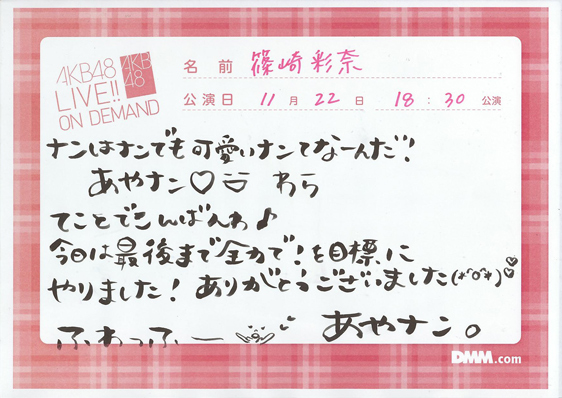 AKB48
LIVE!!
ON DEMAND
AKB
48
名前 篠崎彩奈
公演日 11月22日 18:30公演
ナンはナンでも可愛いナンてなーんだ?!
あやナン♡ わら
てことでこんばんわ♪
今日は最後まで全力で!を目標に
やりました!ありがとうございました(*^o^*)
ふわっふー
あやナン。
DMM.com